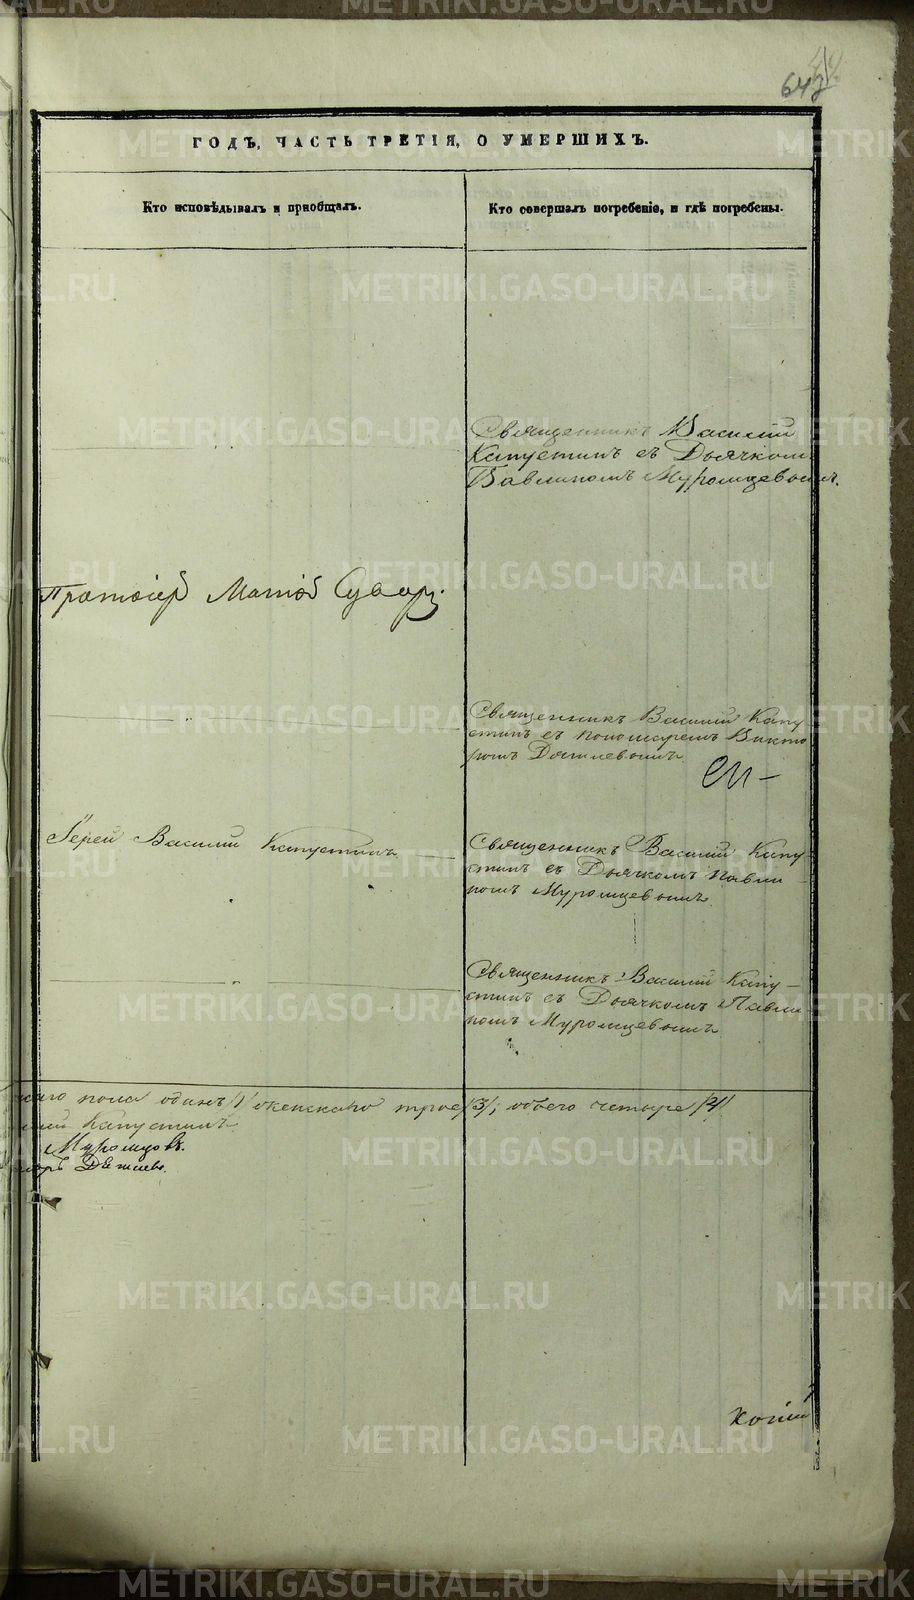 642
ГОДЪ, ЧАСТЬ ТРЕТІЯ, О УМЕРШИХЪ.
Кто исповѣдывалъ и пріобщалъ.
Кто совершалъ погребеніе, и гдѣ погребены.
Священникъ Василій
Капустинъ съ Дьячкомъ
Павлиномъ Муромцевымъ.
Протоіер Матѳ
Священникъ Василій Капу
стинъ съ пономаремъ Викто
ромъ
Іерей Василій Капустинъ
Священникъ Василій Капу
стинъ съ Дьячкомъ Павли
номъ Муромцевымъ.
Священникъ Василій Капу-
стинъ съ Дьячкомъ Павли
номъ Муромцевымъ
пола одинъ /1/ женскаго трое /3/; обоего четыре /4/
Капустинъ.
Муромцовъ.
METRIKI.GASO-URAL.RU